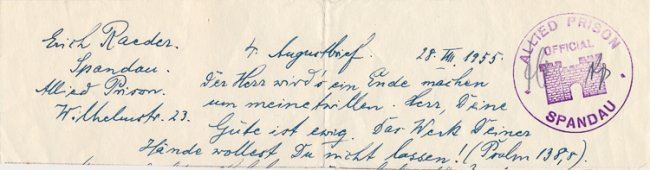 Erich Raeder.
Spandau.
Allied Prison.
Wilhelmstr. 23.
4. Augustbrief. 28. VIII. 1955.
Der Herr wird's ein Ende machen
um meinetwillen. Herr, Deine
Güte ist ewig. Das Werk Deiner
Hände wollest Du nicht lassen! (Psalm 138,8)
ALLIED PRISON
OFFICIAL
SPANDAU